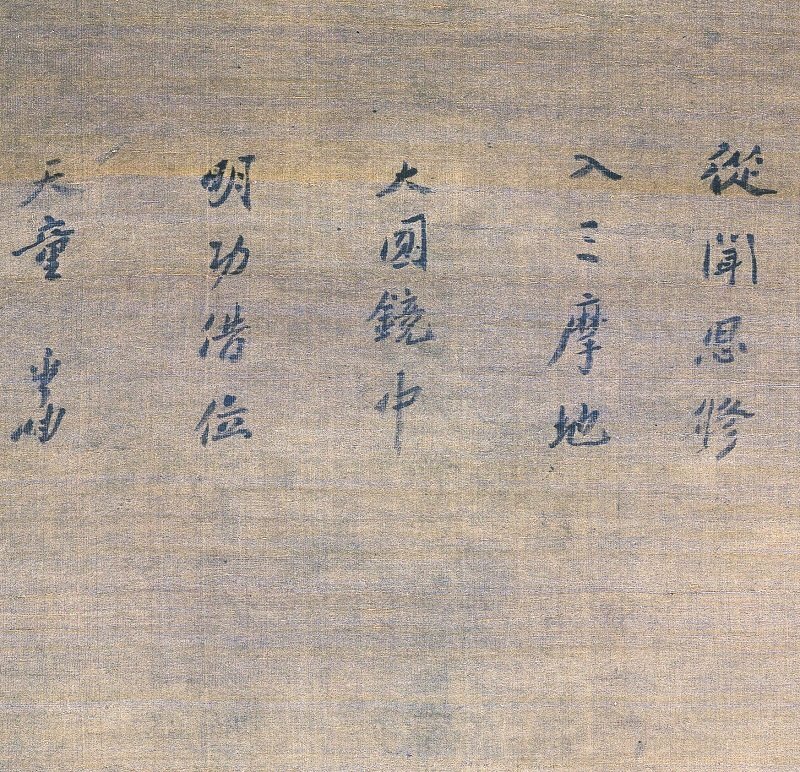 從聞思修
入三摩地
大圓鏡中
明功借位
天童 雲岫